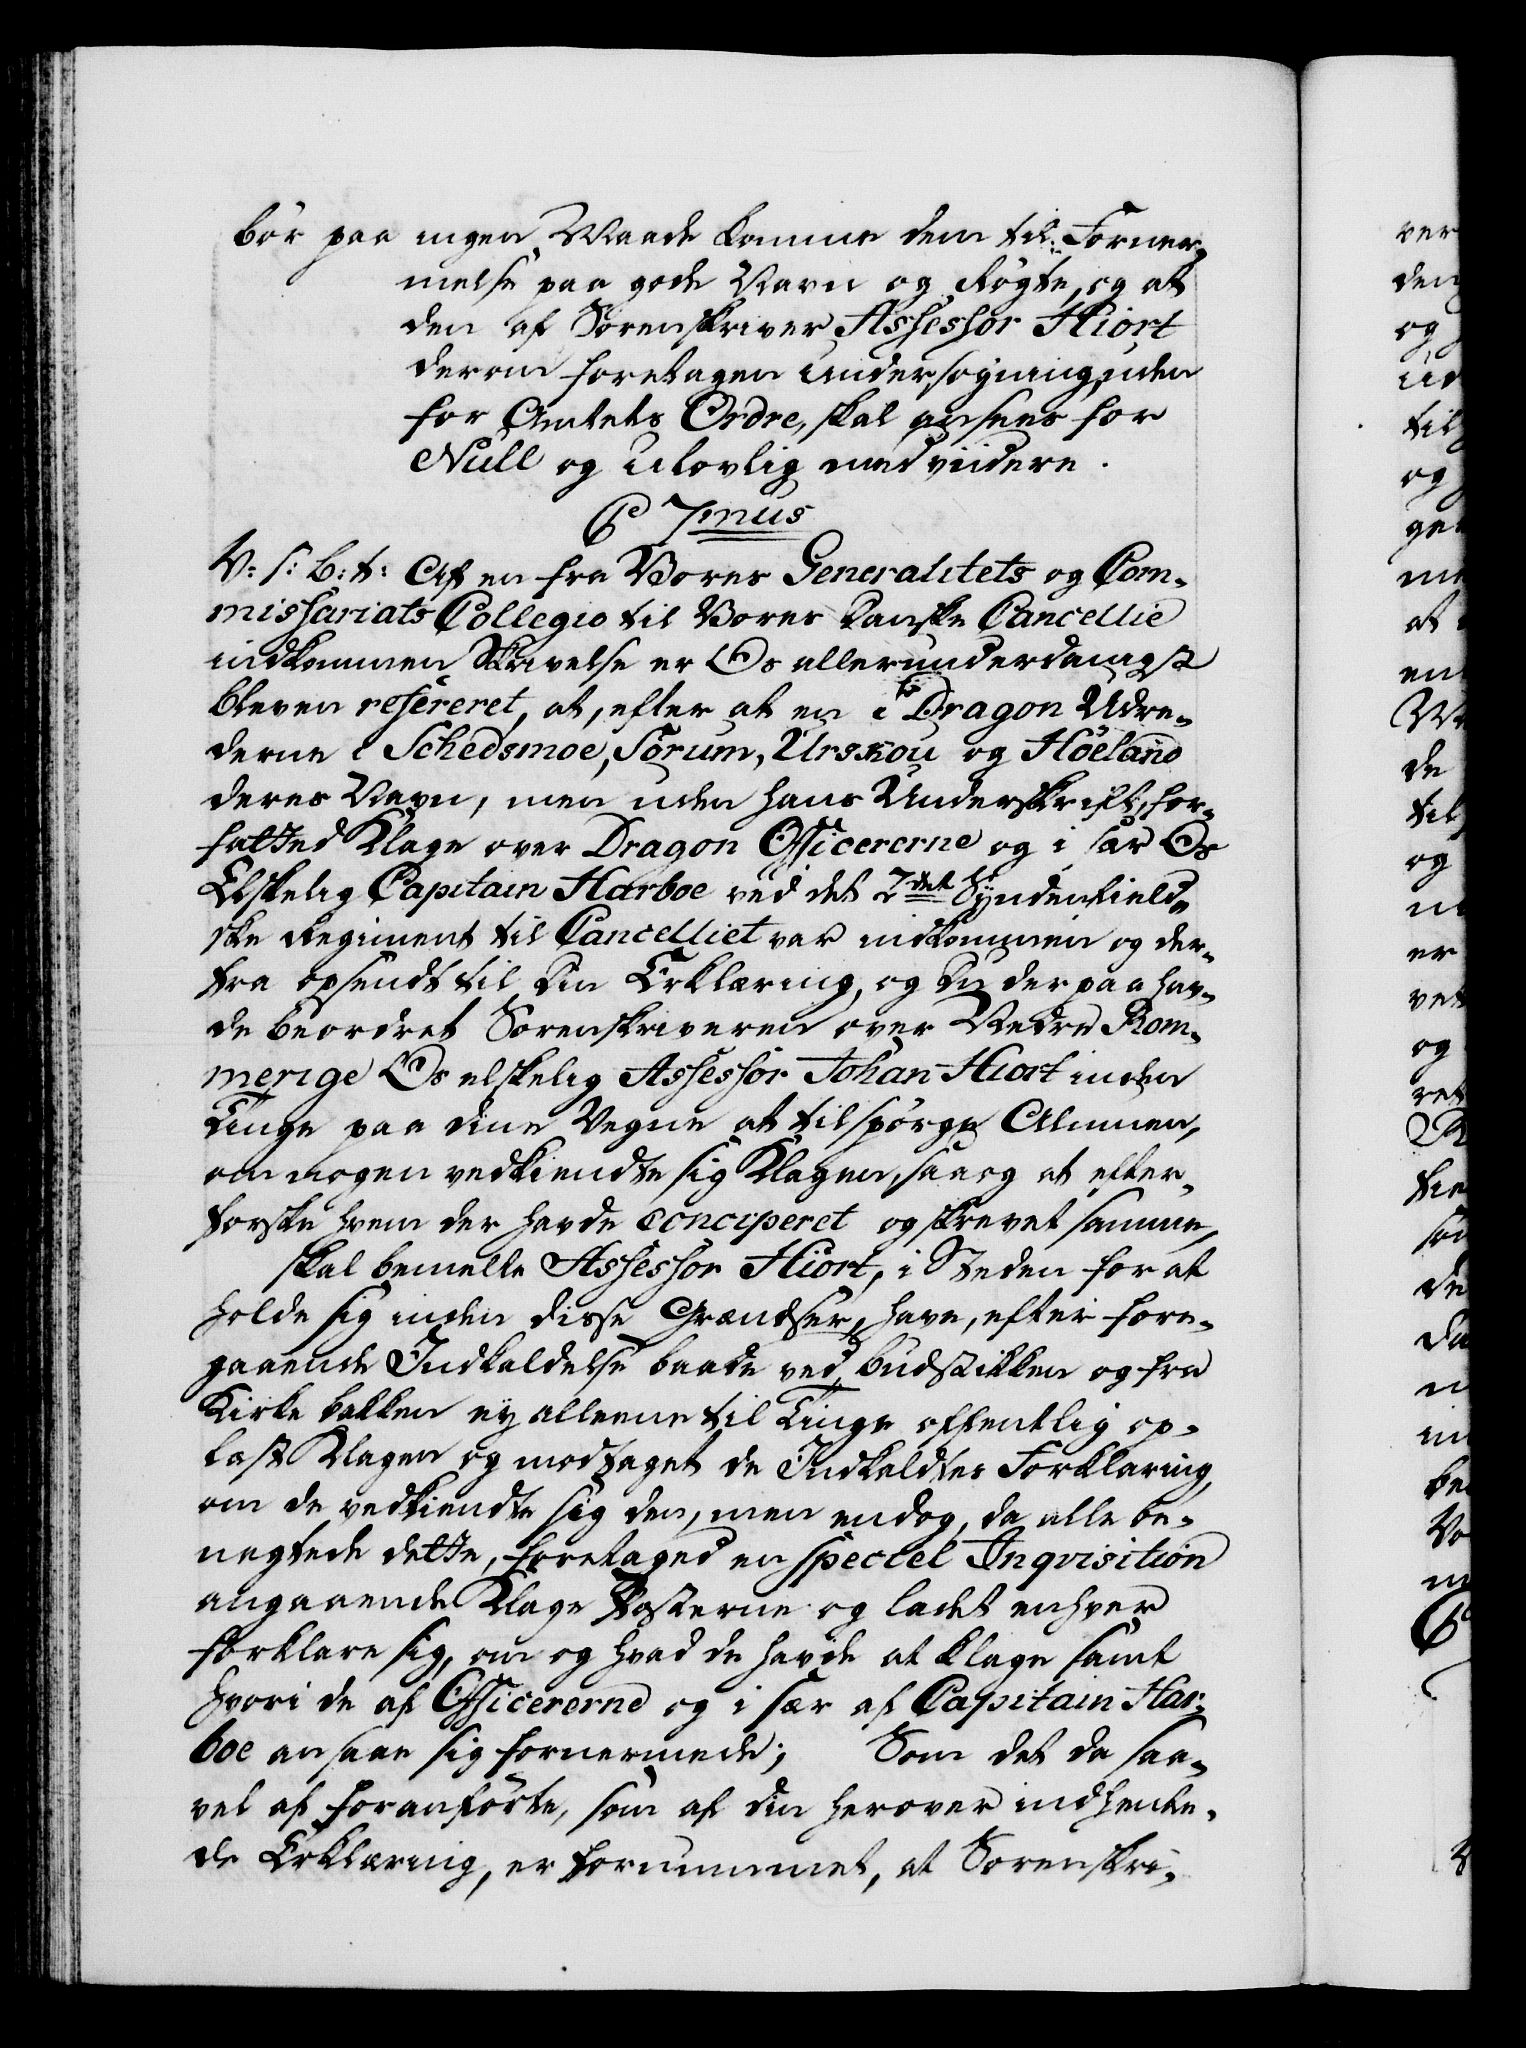 bör paa ingen Maade komme dem til Forner-
melse paa gode Navn og Rögte, og at
den af Sorenskriver Assessor Hiort
derom foretagen Undersögning, uden
for Amtets Ordre, skal ansees for
Null og ulovlig med viidere.
C 7mus
V: s: b: t: Af en fra Vores Generalitets og Com-
missariats Collegio til Vores Danske Cancellie
indkommen Skrivelse er Os allerunderdanigst
bleven refereret, at, efter at en i Dragon Udre-
derne i Schedsmoe, Sörum, Urskou og Höeland
deres Navn, men uden hans Underskrift, for-
fatted Klage over Dragon Officererne og i sær Os
Elskelig Capitain Harboe ved det 2det Syndenfield-
ske Regiment til Cancelliet var indkommen og der-
fra opsendt til din Erklæring, og du derpaa hav-
de beordret Sorenskriveren over Nedre Rom-
merige Os elskelig Assessor Johan Hiort inden
Tinge paa dine Vegne at tilspörge Almuen,
om nogen vedkiendte sig Klagen, saa og at efter-
forske hvem der havde conciperet og skrevet samme,
skal bemelte Assessor Hiort, i Steden for at
holde sig inden disse Grændser, have, efter fore-
gaaende Indkaldelse baade ved budstikken og fra
Kirke bakken ey alleene til Tinge offentlig op-
læst Klagen og modtaget de Indkaldtes Forklaring,
om de vedkiendte sig den, men endog, da alle be-
negtede dette, foretaged en speciel Inqvisition
angaaende Klage Posterne og ladet enhver
forklare sig, om og hvad de havde at klage samt
hvori de af Officererne og i sær af Capitain Har-
boe ansaae sig fornermede; Som det da saa-
vel af foranförte, som af din herover indhente-
de Erklæring, er fornummet, at Sorenskri-